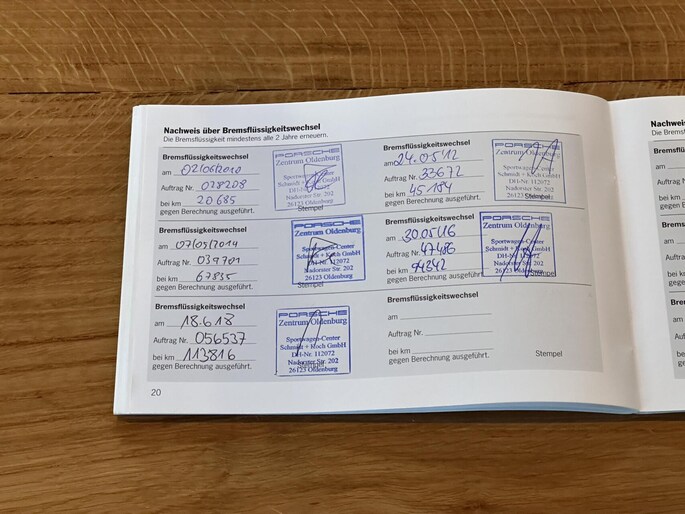 Nachweis über Bremsflüssigkeitswechsel
Die Bremsflüssigkeit mindestens alle 2 Jahre erneuern.
Bremsflüssigkeitswechsel
am 02/06/2010
Auftrag Nr. 028208
bei km 20685
gegen Berechnung ausgeführt.
PORSCHE
Zentrum Oldenburg
Sportwagen-Center
Schmidt + Koch GmbH
DH-Nr. 112072
Nadorster Str. 202
26123 Oldenburg
Stempel
Bremsflüssigkeitswechsel
am 24.05.12
Auftrag Nr. 33672
bei km 45184
gegen Berechnung ausgeführt.
PORSCHE
Zentrum Oldenburg
Sportwagen-Center
Schmidt + Koch GmbH
DH-Nr. 112072
Nadorster Str. 202
26123 Oldenburg
Stempel
Bremsflüssigkeitswechsel
am 07/05/2014
Auftrag Nr. 039701
bei km 67835
gegen Berechnung ausgeführt.
PORSCHE
Zentrum Oldenburg
Sportwagen-Center
Schmidt + Koch GmbH
DH-Nr. 112072
Nadorster Str. 202
26123 Oldenburg
Bremsflüssigkeitswechsel
am 30.05.16
Auftrag Nr. 47486
bei km 94342
gegen Berechnung ausgeführt.
PORSCHE
Zentrum Oldenburg
Sportwagen-Center
Schmidt + Koch GmbH
DH-Nr. 112072
Nadorster Str. 202
26123 Oldenburg
Bremsflüssigkeitswechsel
am 18.6.18
Auftrag Nr. 056537
bei km 113816
gegen Berechnung ausgeführt.
PORSCHE
Zentrum Oldenburg
Sportwagen-Center
Schmidt + Koch GmbH
DH-Nr. 112072
Nadorster Str. 202
26123 Oldenburg
Bremsflüssigkeitswechsel
am
Auftrag Nr.
bei km
gegen Berechnung ausgeführt.
Stempel
20
Nachweis
Die Brems